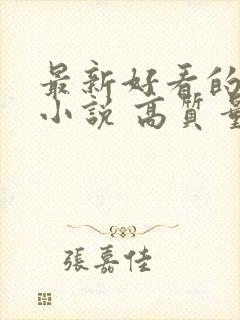 最新好看的
小说 高質量
張嘉佳